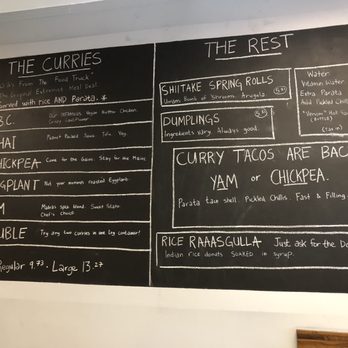 THE CURRIES
From The "Food Truck"
Served with rice AND Parata.
B.C.
Crispy Cauliflower
THAI
Peanut Packed Sauce. Tofu. Veg.
CHICKPEA
Come for the Gains. Stay for the Mains
EGGPLANT
Not your mommas roasted Eggplant.
Madras spice blend. Sweet Potato.
Chef's choice
DOUBLE
Try any two curries in one big container!
Regular 9.73. Large 13.27
THE REST
SHIITAKE SPRING ROLLS
Shrooms. Arugula
DUMPLINGS
Ingredients vary. Always good.
Water
Vitamin Water
Extra Parata
Add Pickled Chili
CURRY TACOS ARE BACK
YAM or CHICKPEA.
Parata taco shell. Pickled Chillis. Fast & Filling
RICE RAAASGULLA
Just ask for the
Indian rice donuts SOAKED in syrup.